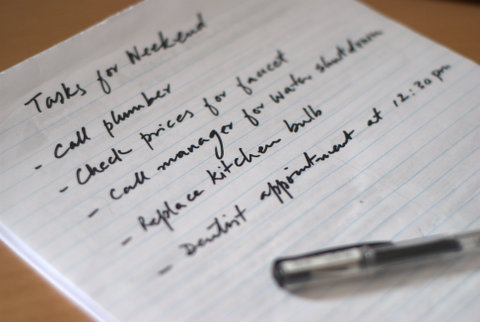 Tasks for Weekend
- Call plumber
- Check prices for faucet
- Call manager for water shutdown
- Replace kitchen bulb
- Dentist appointment at 12:30 pm